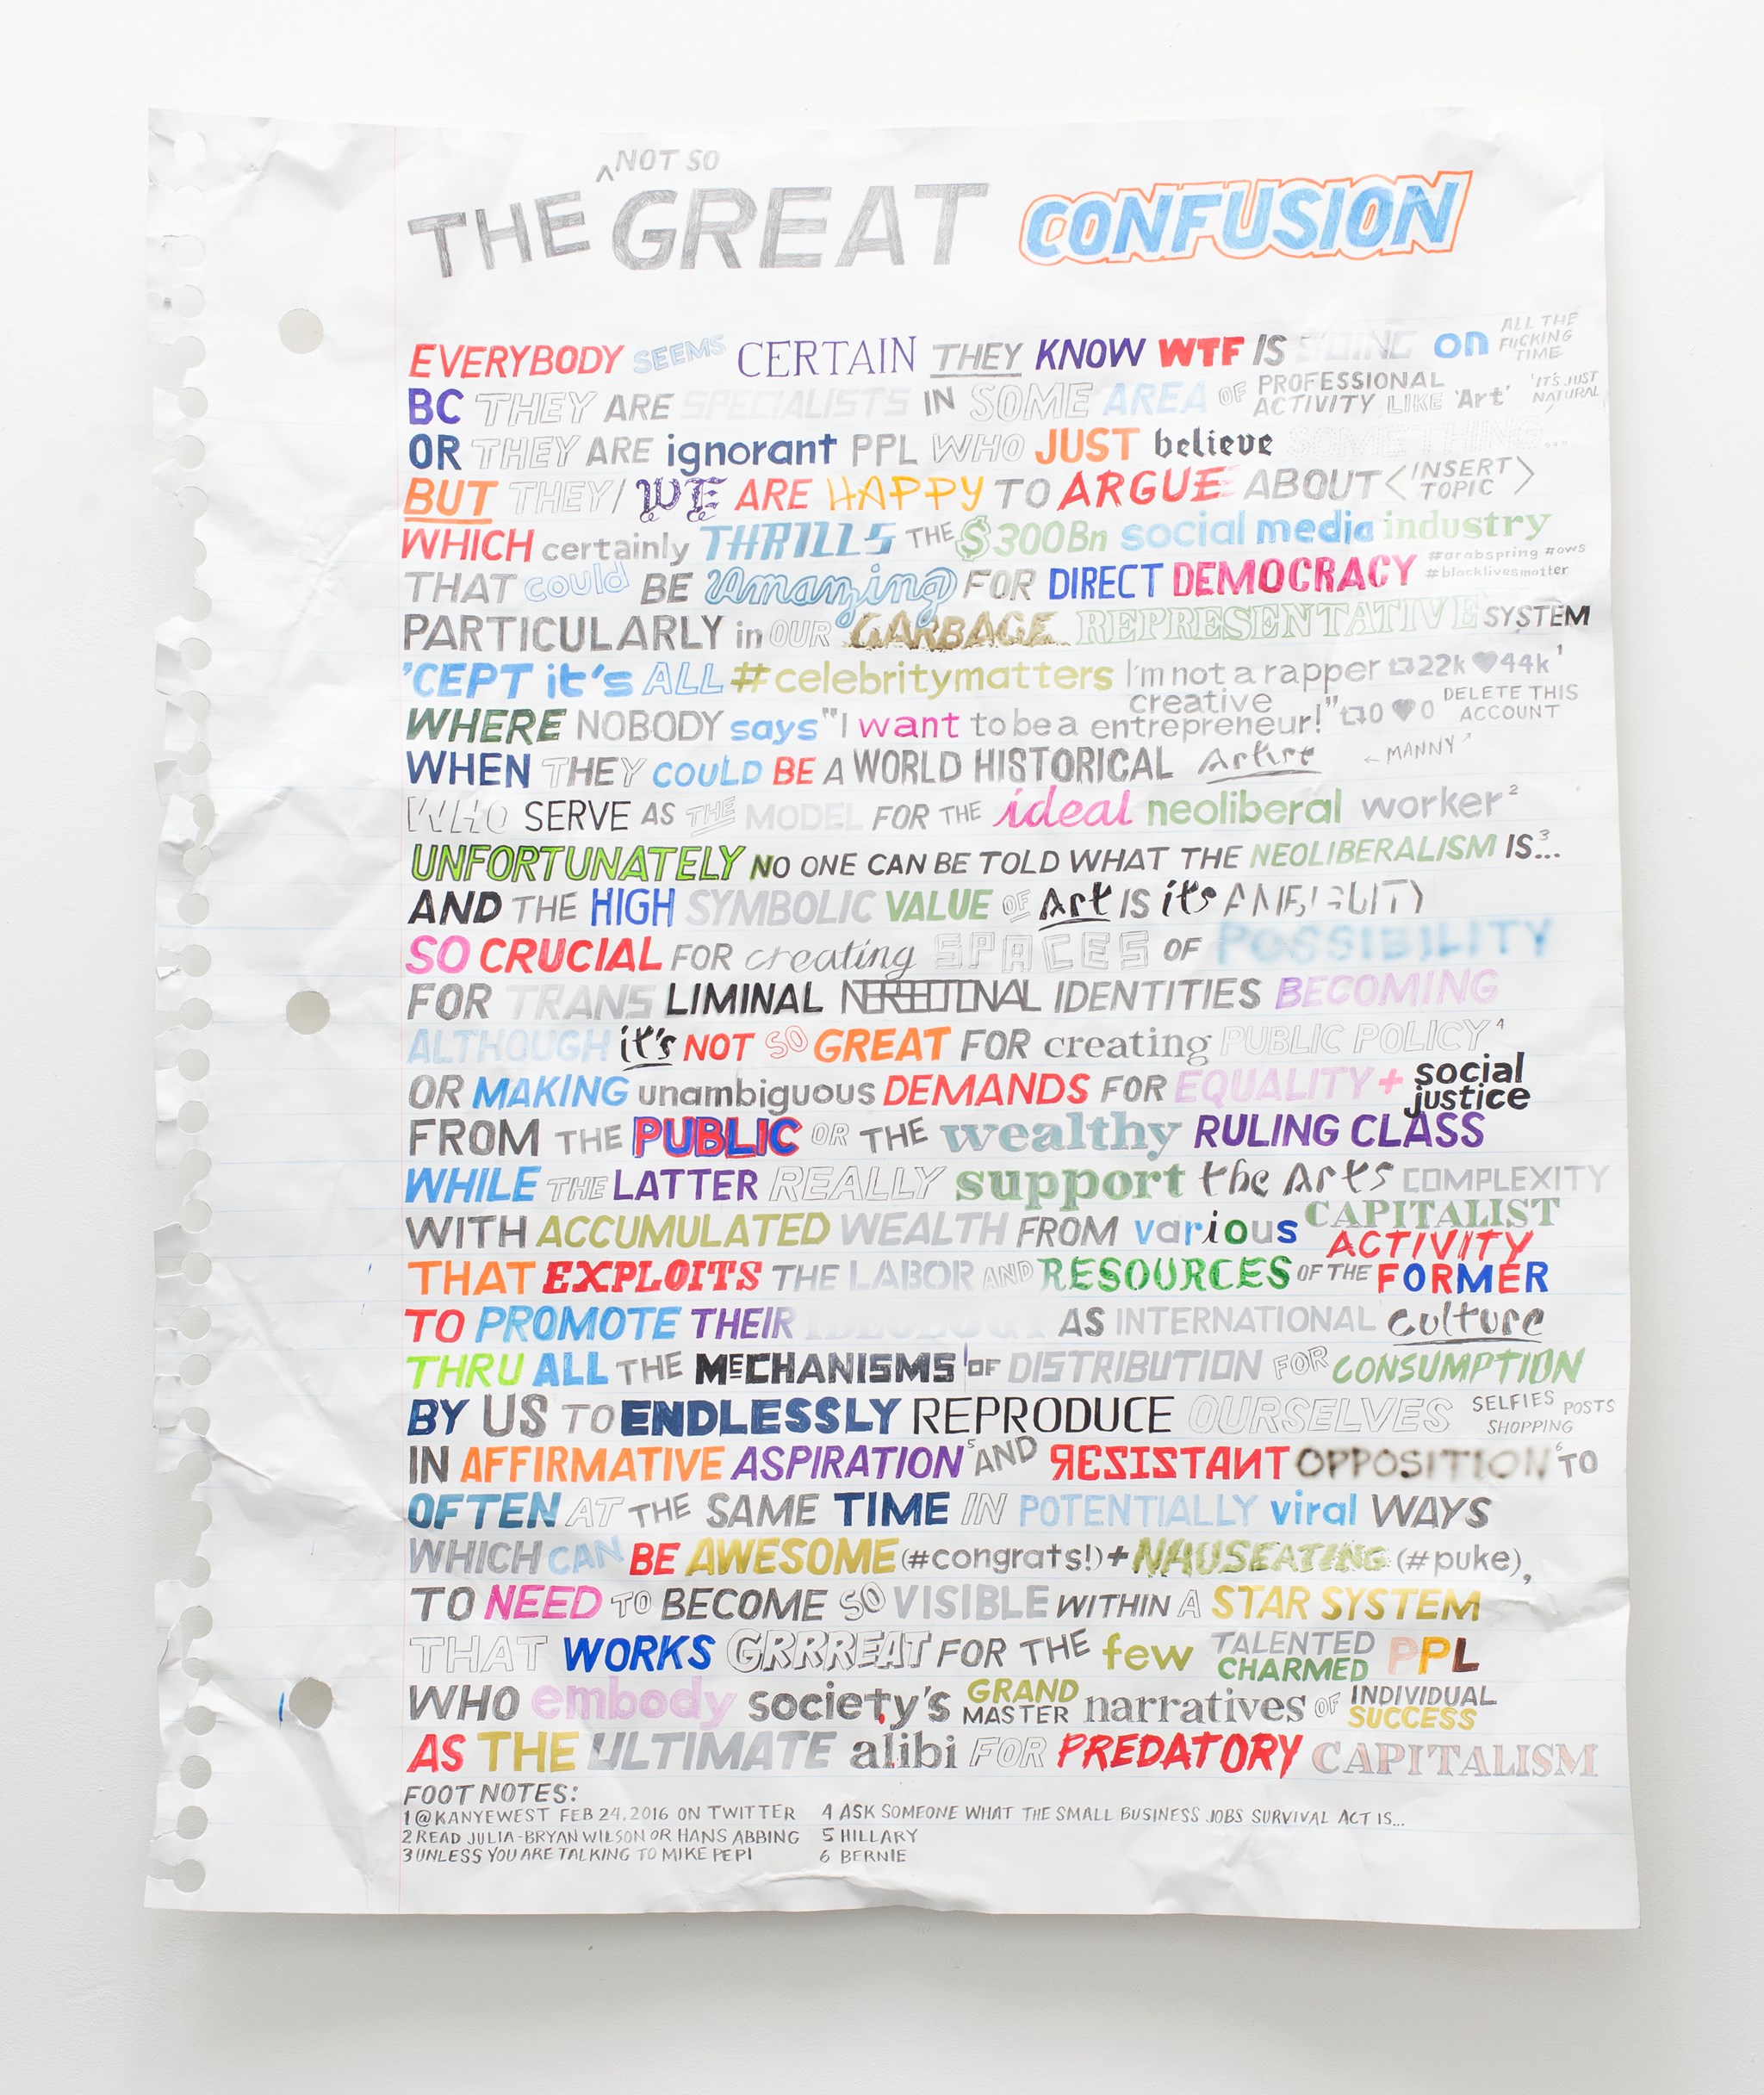 ^NOT SO
THE GREAT CONFUSION
EVERYBODY SEEMS CERTAIN THEY KNOW WTF IS GOING on ALL THE FUCKING TIME
BC THEY ARE SPECIALISTS IN SOME AREA OF PROFESSIONAL ACTIVITY LIKE 'Art' 'IT'S JUST NATURAL'
OR THEY ARE ignorant PPL WHO JUST believe SOMETHING...
BUT THEY/WE ARE HAPPY TO ARGUE ABOUT <INSERT TOPIC>
WHICH certainly THRILLS THE $300Bn social media industry
THAT could BE Amazing FOR DIRECT DEMOCRACY #arabspring #ows #blacklivesmatter
PARTICULARLY in OUR GARBAGE REPRESENTATIVE SYSTEM
'CEPT it's ALL #celebritymatters I'm not a rapper 22k ♥44k¹
WHERE NOBODY says "I want to be a creative entrepreneur!" 0 ♥0 DELETE THIS ACCOUNT
WHEN THEY COULD BE A WORLD HISTORICAL Artist ← MANNY ↗
WHO SERVE AS THE MODEL FOR THE ideal neoliberal worker²
UNFORTUNATELY NO ONE CAN BE TOLD WHAT THE NEOLIBERALISM IS...³
AND THE HIGH SYMBOLIC VALUE OF Art IS it's AMBIGUITY
SO CRUCIAL FOR creating SPACES OF POSSIBILITY
FOR TRANS LIMINAL IDENTITIES BECOMING
ALTHOUGH it's NOT SO GREAT FOR creating PUBLIC POLICY⁴
OR MAKING unambiguous DEMANDS FOR EQUALITY + social justice
FROM THE PUBLIC OR THE wealthy RULING CLASS
WHILE THE LATTER REALLY support the Arts COMPLEXITY
WITH ACCUMULATED WEALTH FROM various CAPITALIST ACTIVITY
THAT EXPLOITS THE LABOR AND RESOURCES OF THE FORMER
TO PROMOTE THEIR IDEOLOGY AS INTERNATIONAL culture
THRU ALL THE MECHANISMS OF DISTRIBUTION FOR CONSUMPTION
BY US TO ENDLESSLY REPRODUCE OURSELVES SELFIES POSTS SHOPPING
IN AFFIRMATIVE ASPIRATION⁵ AND RESISTANT OPPOSITION⁶ TO
OFTEN AT THE SAME TIME IN POTENTIALLY viral WAYS
WHICH CAN BE AWESOME (#congrats!) + NAUSEATING (#puke),
TO NEED TO BECOME SO VISIBLE WITHIN A STAR SYSTEM
THAT WORKS GRRREAT FOR THE few TALENTED CHARMED PPL
WHO embody society's GRAND MASTER narratives OF INDIVIDUAL SUCCESS
AS THE ULTIMATE alibi FOR PREDATORY CAPITALISM
FOOT NOTES:
1 @KANYEWEST FEB 24.2016 ON TWITTER
2 READ JULIA-BRYAN WILSON OR HANS ABBING
3 UNLESS YOU ARE TALKING TO MIKE PEPI
4 ASK SOMEONE WHAT THE SMALL BUSINESS JOBS SURVIVAL ACT IS...
5 HILLARY
6 BERNIE